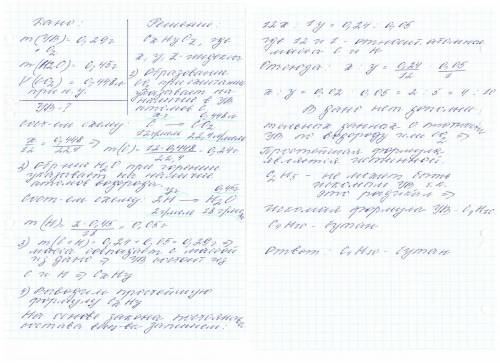 Дано:
m(УВ) = 0,29г
+ O₂
m(H₂O) = 0,45г
V(CO₂) = 0,448л
при н.у.
УВ - ?
Решение:
CxHyOz, где
x, y, z - индексы
1) Образование
CO₂ при сжигании
указывает на
наличие в УВ
атомов C
Сост-ем схему:
x г 0,448л
C → CO₂
12г/моль 22,4л/моль
x/12 = 0,448/22,4 ⇒ m(C) = 12·0,448/22,4 = 0,24г
2) Обр-ние H₂O при горении
указывает на наличие
атомов водорода.
Сост-ем схему:
y г 0,45г
2H → H₂O
2г/моль 18г/моль
m(H) = 2·0,45/18 = 0,05г
3) m(C+H) = 0,24 + 0,05 = 0,29г ⇒
масса совпадает с массой
из дано ⇒ УВ состоит из
C и H ⇒ CxHy
4) Выводим простейшую
формулу CxHy
На основе закона постоянства
состава вещ-ва запишем:
12x : 1y = 0,24 : 0,05
где 12 и 1 - относит. атомные
массы C и H
Отсюда: x : y = 0,24/12 : 0,05/1
x : y = 0,02 : 0,05 = 2 : 5 = 4 : 10
В дано нет дополни-
тельных данных о плотности
УВ по водороду или CO₂ ⇒
Простейшая формула
является истинной.
C₂H₅ - не может быть
искомым УВ, т.к.
это радикал ⇒
искомая формула УВ - C₄H₁₀
C₄H₁₀ - бутан
Ответ: C₄H₁₀ - бутан